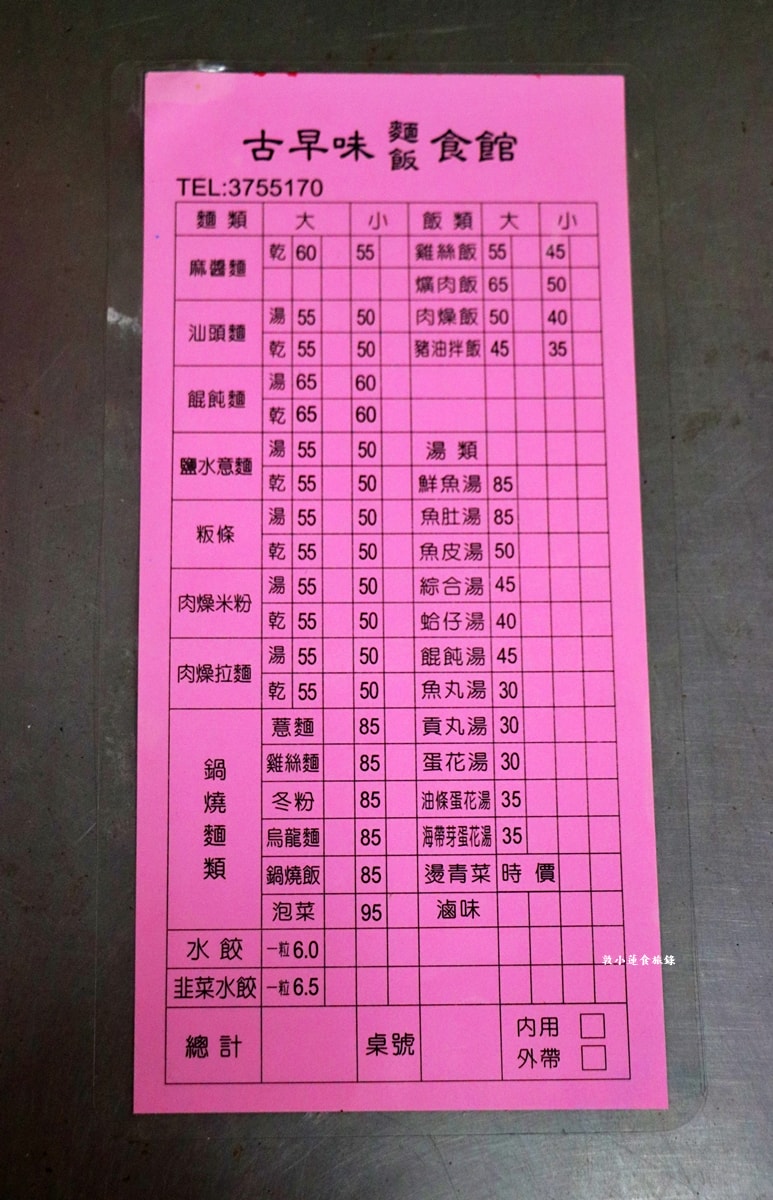 古早味麵飯食館
TEL:3755170
麵類 大 小 飯類 大 小
麻醬麵 乾 60 55 雞絲飯 55 45
爌肉飯 65 50
汕頭麵 湯 55 50 肉燥飯 50 40
乾 55 50 豬油拌飯 45 35
餛飩麵 湯 65 60
乾 65 60
鹽水意麵 湯 55 50 湯類
乾 55 50 鮮魚湯 85
粄條 湯 55 50 魚肚湯 85
乾 55 50 魚皮湯 50
肉燥米粉 湯 55 50 綜合湯 45
乾 55 50 蛤仔湯 40
肉燥拉麵 湯 55 50 餛飩湯 45
乾 55 50 魚丸湯 30
鍋燒麵類 薏麵 85 貢丸湯 30
雞絲麵 85 蛋花湯 30
冬粉 85 油條蛋花湯 35
烏龍麵 85 海帶芽蛋花湯 35
鍋燒飯 85 燙青菜 時價
泡菜 95 滷味
水餃 一粒 6.0
韭菜水餃 一粒 6.5
總計 桌號 內用 □
外帶 □
敦小蓮食旅錄